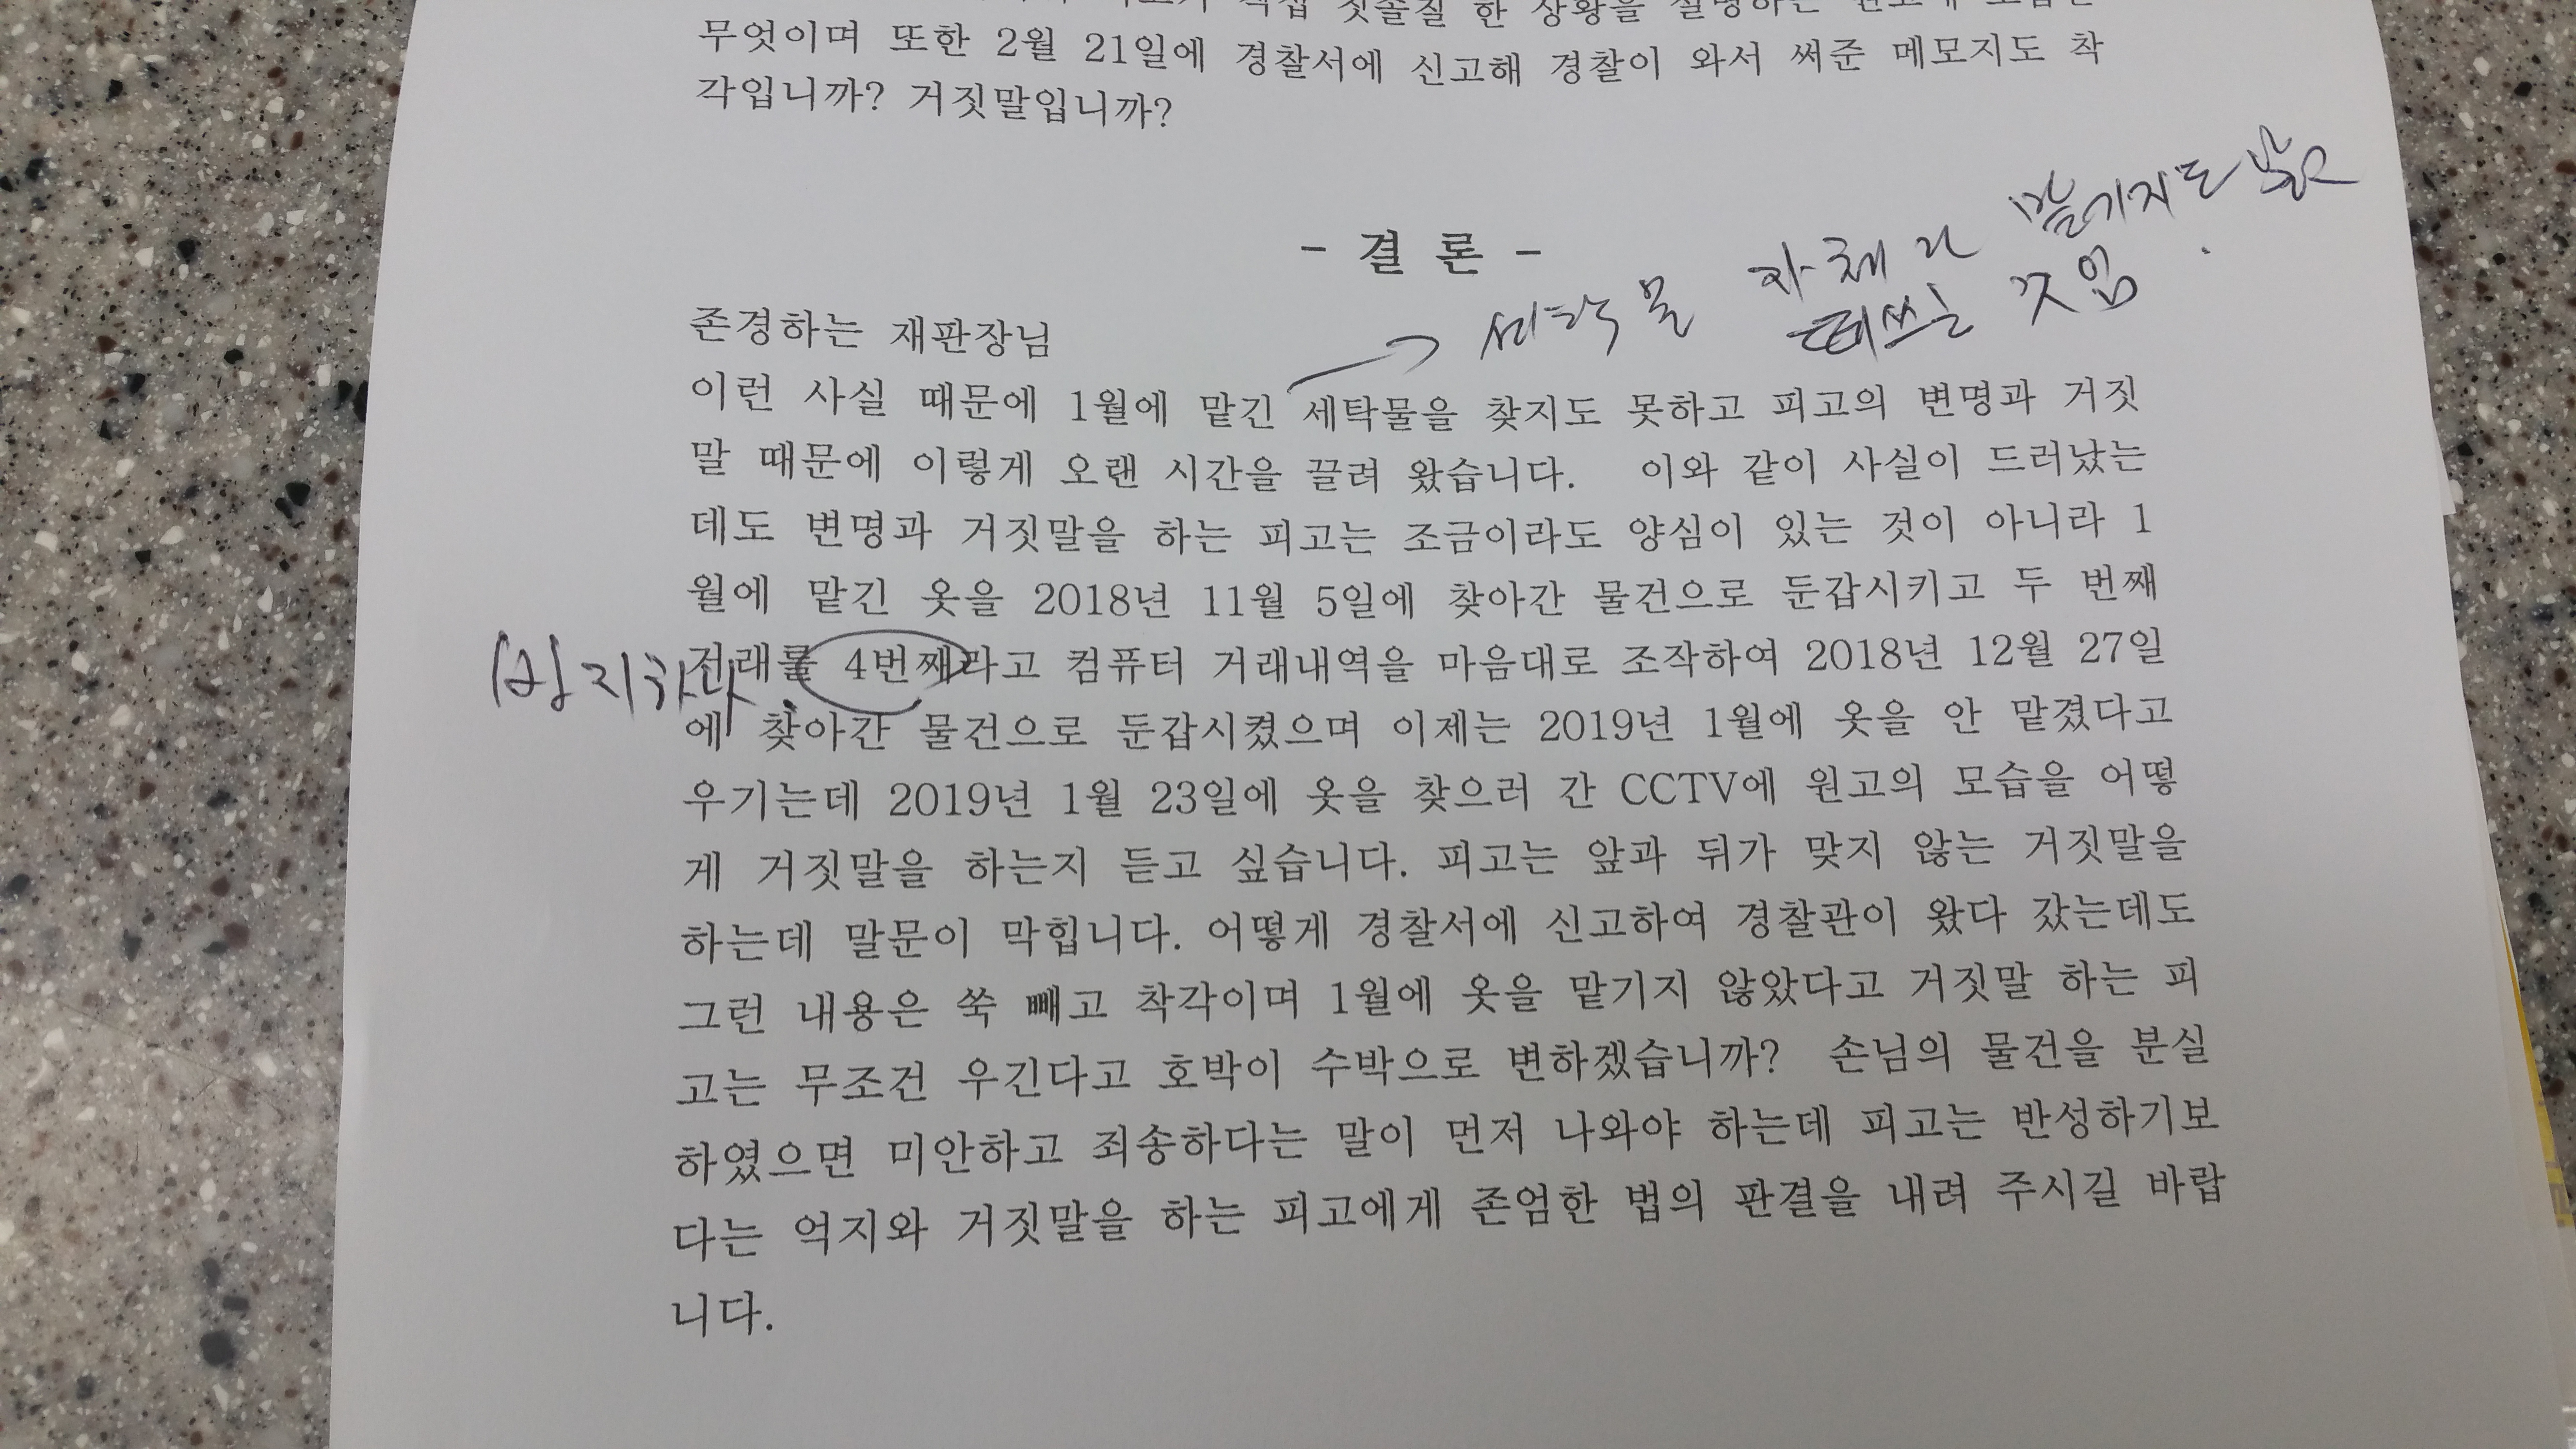 직접 칫솔질 한 상황을 설명하는
무엇이며 또한 2월 21일에 경찰서에 신고해 경찰이 와서 써준 메모지도 착
각입니까? 거짓말입니까?
- 결 론 -
세탁물 자체가 맡기지도 않은
떼쓰는 것임
존경하는 재판장님
이런 사실 때문에 1월에 맡긴 세탁물을 찾지도 못하고 피고의 변명과 거짓
말 때문에 이렇게 오랜 시간을 끌려 왔습니다. 이와 같이 사실이 드러났는
데도 변명과 거짓말을 하는 피고는 조금이라도 양심이 있는 것이 아니라 1
월에 맡긴 옷을 2018년 11월 5일에 찾아간 물건으로 둔갑시키고 두 번째
거래를 4번째라고 컴퓨터 거래내역을 마음대로 조작하여 2018년 12월 27일
에 찾아간 물건으로 둔갑시켰으며 이제는 2019년 1월에 옷을 안 맡겼다고
우기는데 2019년 1월 23일에 옷을 찾으러 간 CCTV에 원고의 모습을 어떻
게 거짓말을 하는지 듣고 싶습니다. 피고는 앞과 뒤가 맞지 않는 거짓말을
하는데 말문이 막힙니다. 어떻게 경찰서에 신고하여 경찰관이 왔다 갔는데도
그런 내용은 쏙 빼고 착각이며 1월에 옷을 맡기지 않았다고 거짓말 하는 피
고는 무조건 우긴다고 호박이 수박으로 변하겠습니까? 손님의 물건을 분실
하였으면 미안하고 죄송하다는 말이 먼저 나와야 하는데 피고는 반성하기보
다는 억지와 거짓말을 하는 피고에게 존엄한 법의 판결을 내려 주시길 바랍
니다.